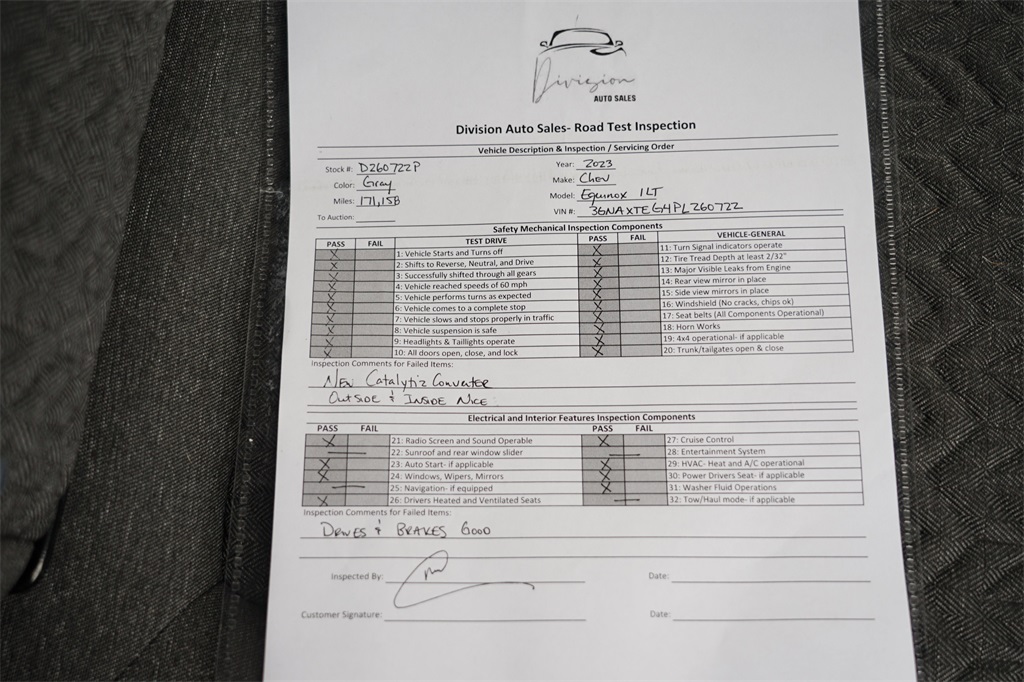 Division
AUTO SALES
Division Auto Sales- Road Test Inspection
Vehicle Description & Inspection / Servicing Order
Stock #: D260722P Year: 2023
Color: Gray Make: Chev
Miles: 171,158 Model: Equinox 1LT
To Auction: VIN #: 3GNAXTEG4PL260722
Safety Mechanical Inspection Components
PASS FAIL TEST DRIVE PASS FAIL VEHICLE-GENERAL
X 1: Vehicle Starts and Turns off X 11: Turn Signal indicators operate
X 2: Shifts to Reverse, Neutral, and Drive X 12: Tire Tread Depth at least 2/32"
X 3: Successfully shifted through all gears X 13: Major Visible Leaks from Engine
X 4: Vehicle reached speeds of 60 mph X 14: Rear view mirror in place
X 5: Vehicle performs turns as expected X 15: Side view mirrors in place
X 6: Vehicle comes to a complete stop X 16: Windshield (No cracks, chips ok)
X 7: Vehicle slows and stops properly in traffic X 17: Seat belts (All Components Operational)
X 8: Vehicle suspension is safe X 18: Horn Works
X 9: Headlights & Taillights operate X 19: 4x4 operational- if applicable
X 10: All doors open, close, and lock X 20: Trunk/tailgates open & close
Inspection Comments for Failed Items:
New Catalytic Converter
Outside & Inside Nice
Electrical and Interior Features Inspection Components
PASS FAIL PASS FAIL
X 21: Radio Screen and Sound Operable X 27: Cruise Control
— 22: Sunroof and rear window slider — 28: Entertainment System
X 23: Auto Start- if applicable X 29: HVAC- Heat and A/C operational
X 24: Windows, Wipers, Mirrors X 30: Power Drivers Seat- if applicable
— 25: Navigation- if equipped X 31: Washer Fluid Operations
X 26: Drivers Heated and Ventilated Seats — 32: Tow/Haul mode- if applicable
Inspection Comments for Failed Items:
Drives & Brakes Good
Inspected By: Date:
Customer Signature: Date: